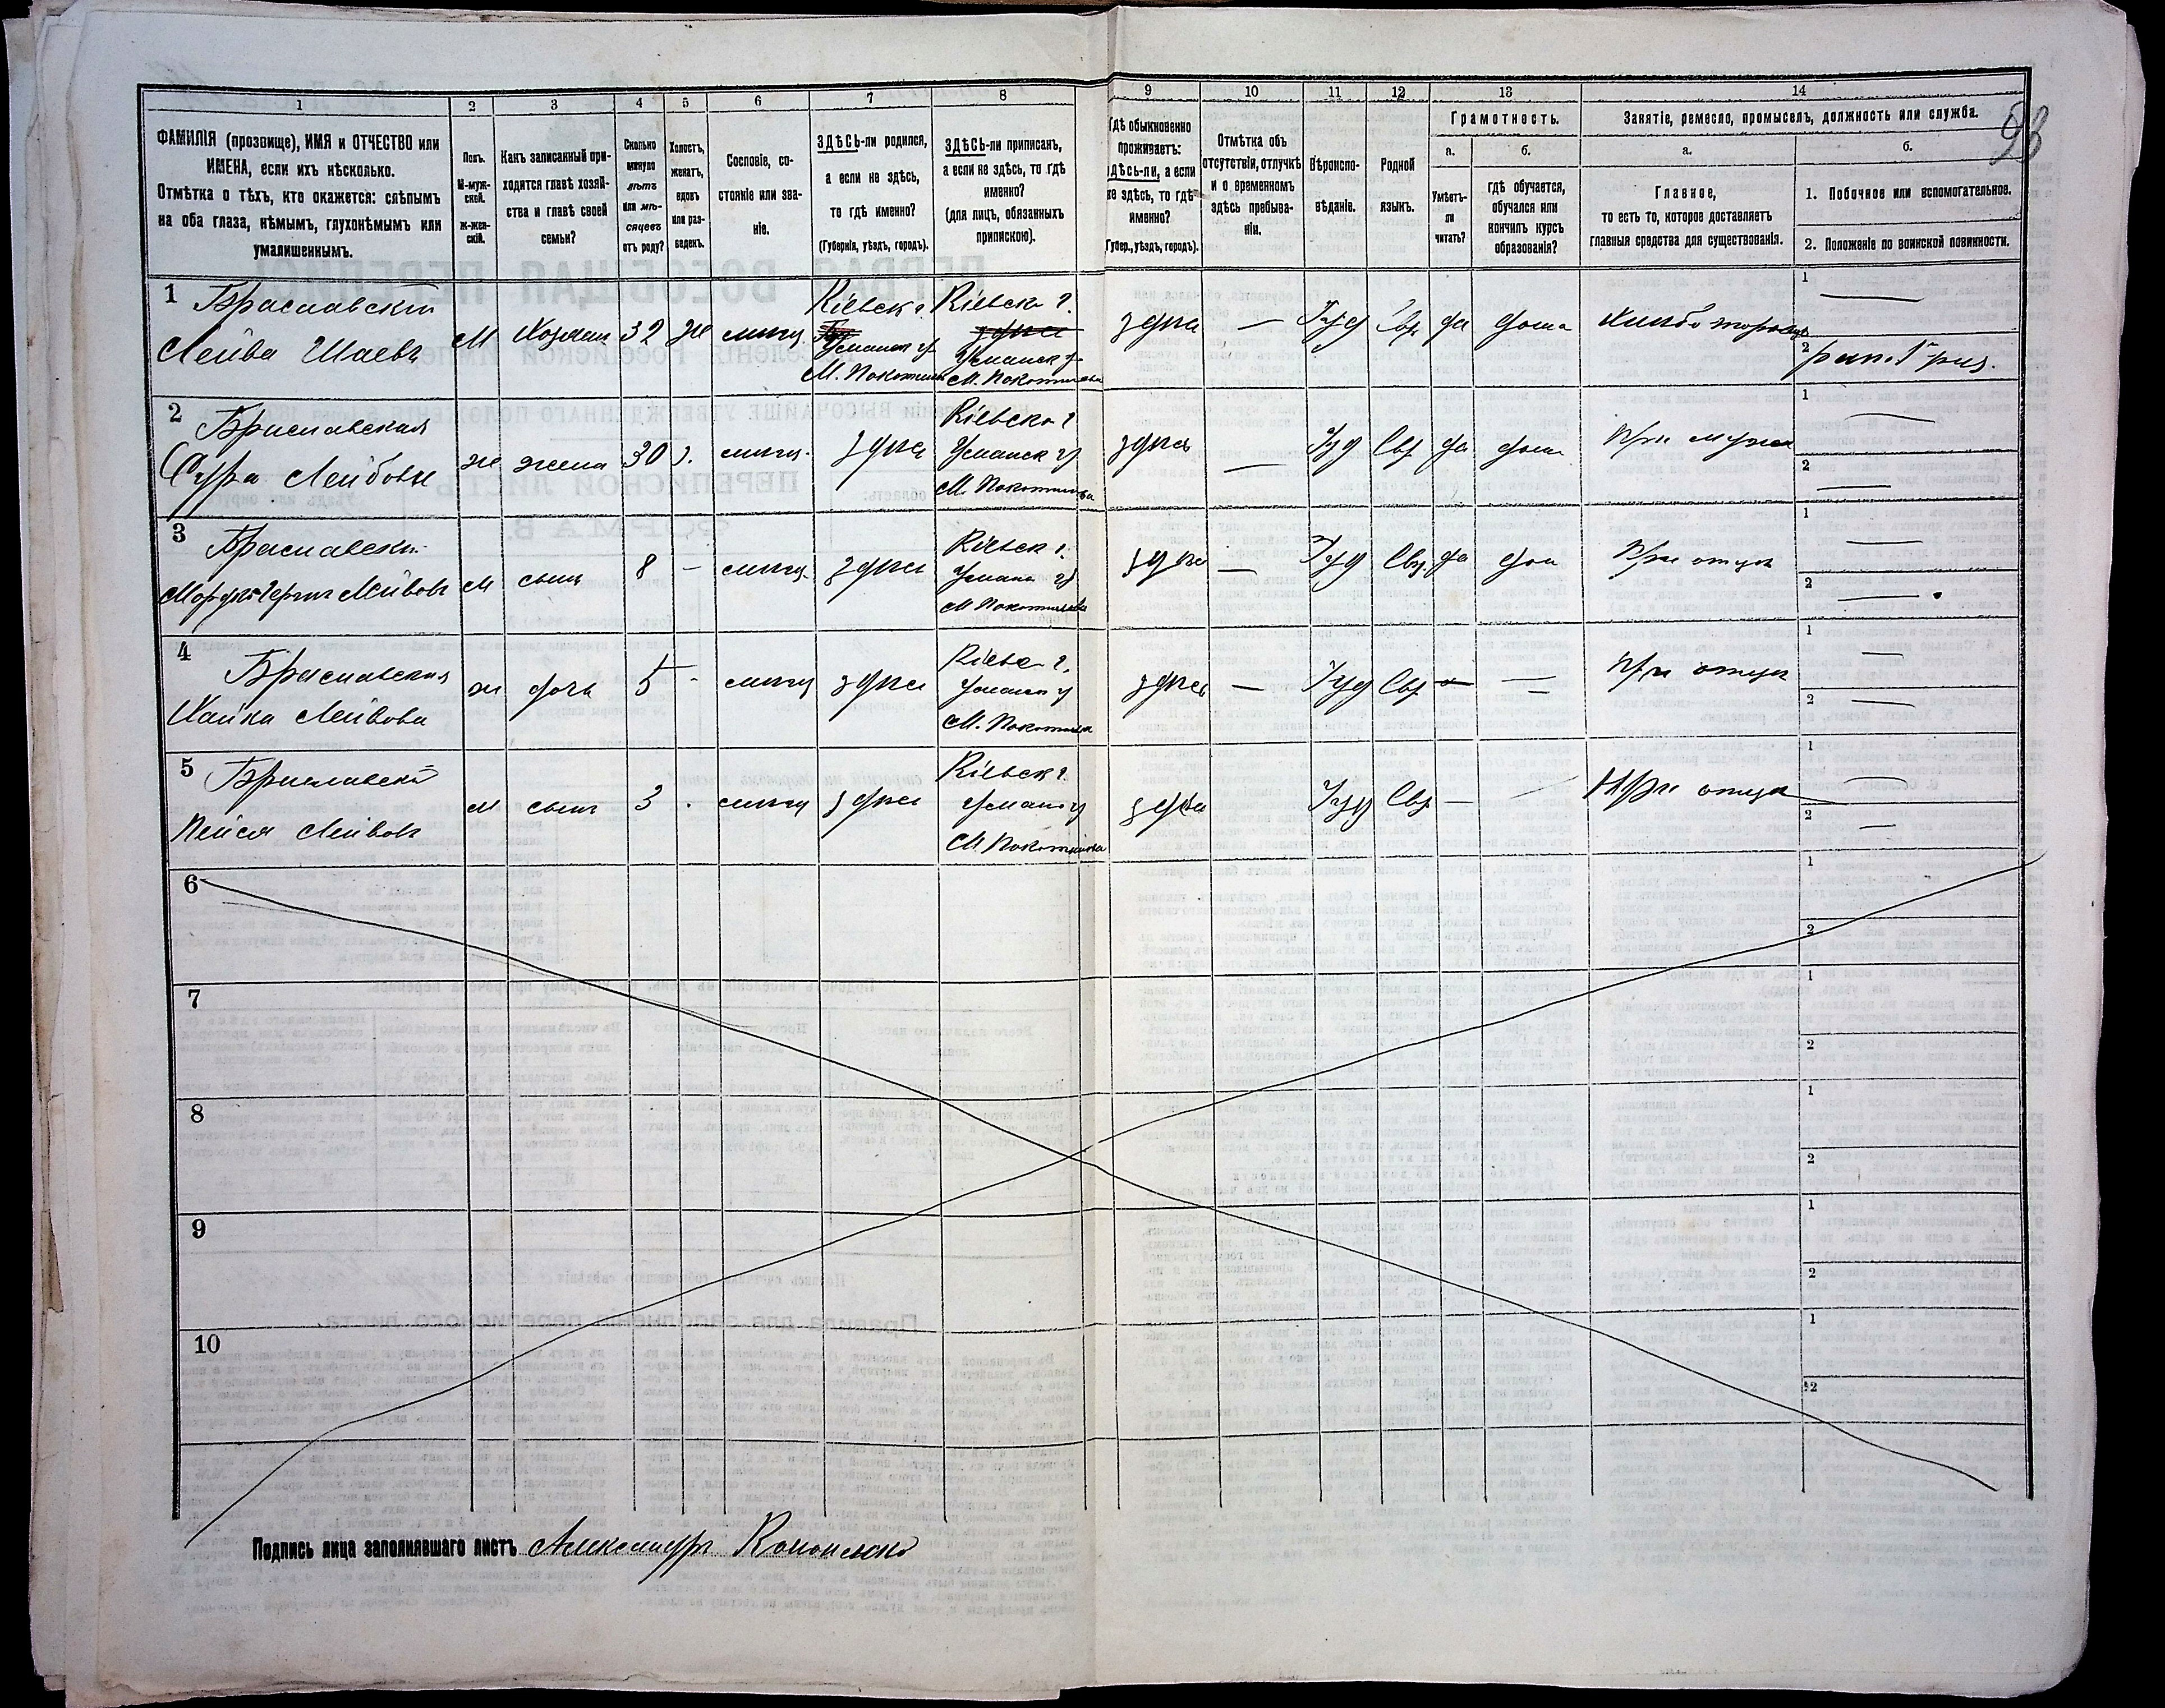 93
1 2 3 4 5 6 7 8 9 10 11 12 13 14
ФАМИЛІЯ (прозвище), ИМЯ и ОТЧЕСТВО или
ИМЕНА, если ихъ нѣсколько.
Отмѣтка о тѣхъ, кто окажется: слѣпымъ
на оба глаза, нѣмымъ, глухонѣмымъ или
умалишеннымъ.
Полъ.
М-муж-
ской.
ж-жен-
скій.
Какъ записанный при-
ходится главѣ хозяй-
ства и главѣ своей
семьи?
Сколько
минуло
лѣтъ
или мѣ-
сяцевъ
отъ роду?
Холостъ,
женатъ,
вдовъ
или раз-
веденъ.
Сословіе, со-
стояніе или зва-
ніе.
ЗДѢСЬ-ли родился,
а если не здѣсь,
то гдѣ именно?
(Губернія, уѣздъ, городъ).
ЗДѢСЬ-ли приписанъ,
а если не здѣсь, то гдѣ
именно?
(для лицъ, обязанныхъ
припискою).
Гдѣ обыкновенно
проживаетъ:
здѣсь-ли, а если
не здѣсь, то гдѣ
именно?
(Губер., уѣздъ, городъ).
Отмѣтка объ
отсутствіи, отлучкѣ
и о временномъ
здѣсь пребыва-
ніи.
Вѣроиспо-
вѣданіе.
Родной
языкъ.
Грамотность.
а.
Умѣетъ-
ли
читать?
б.
гдѣ обучается,
обучался или
кончилъ курсъ
образованія?
Занятіе, ремесло, промыселъ, должность или служба.
а.
Главное,
то есть то, которое доставляетъ
главныя средства для существованія.
б.
1. Побочное или вспомогательное.
2. Положеніе по воинской повинности.
1 Браславскій
Лейва Шаевъ
М Хозяин 32 Же мищ.
Кіевск г.
Уманск у
М. Покотилов
Кіевск г.
здесь
Уманск у
М. Покотилова
здесь — Іуд Евр да дома
1 —
2
2 Браславская
Сура Лейбовна
ж жена 30 з. мищ. здесь
Кіевск г
Уманск у
М. Покотилова
здесь — Іуд Евр да дома При мужа
1 —
2 —
3 Браславски
Лейвов
М сын 8 - мищ. здесь
Кіевск г.
Уманс у
М Покотилова
здесь — Іуд Евр. да дом При отца
1 —
2 —
4 Браславская
Хайка Лейвова
ж дочь 5 - мищ здесь
Кіевс г.
Уманск у
М. Покотилова
здесь — Іуд Евр — — При отца
1 —
2 —
5 Браславскій
Пейся Лейвов
М сын 3 - мищ здесь
Кіевск г.
Уманс у
М. Покотилова
здесь Іуд Евр — При отца
1 —
2 —
6
1
2
7
1
2
8
1
2
9
1
2
10
1
2
Подпись лица заполнявшаго листъ Александръ